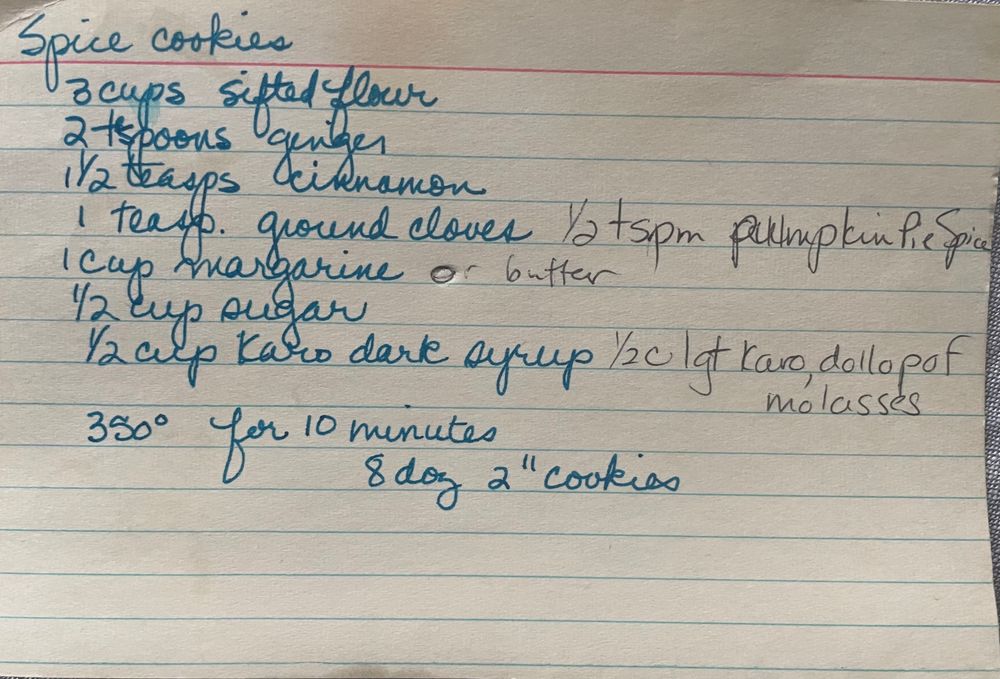 Spice cookies
3 cups sifted flour
2 tspoons ginger
1 1/2 teasps cinnamon
1 teasp. ground cloves 1/2 tspm pumpkin Pie Spice
1 cup margarine or butter
1/2 cup sugar
1/2 cup Karo dark syrup 1/2 c lgt Karo, dollop of
molasses
350° for 10 minutes
8 doz 2" cookies